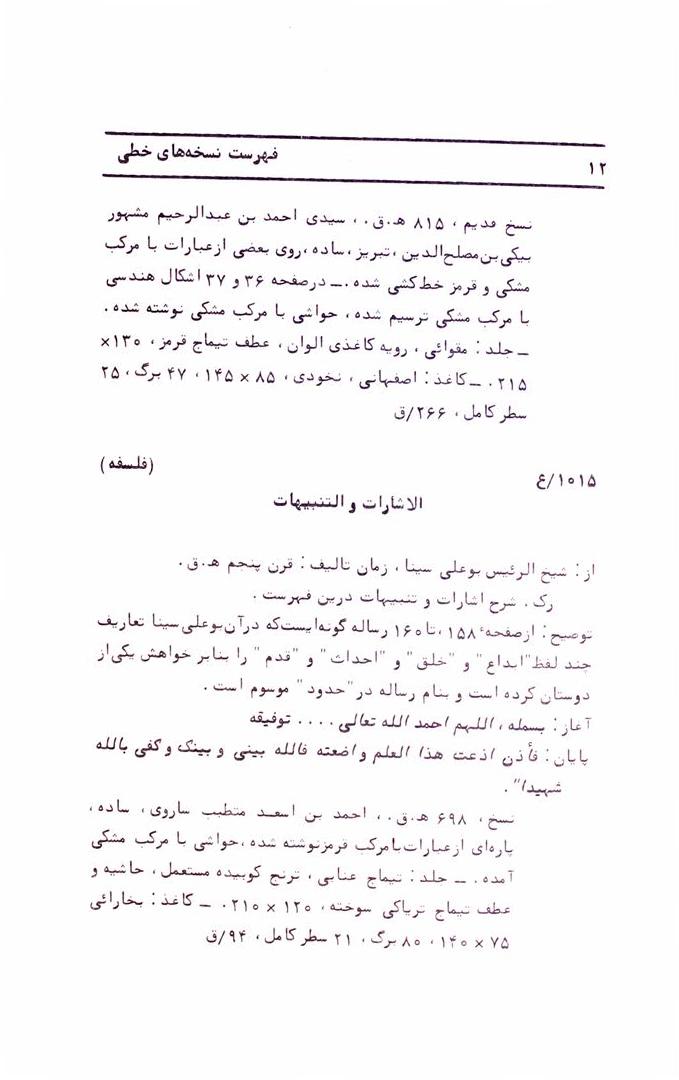 فهرست نسخه‌های خطی
۱۲
نسخ قدیم ، ۸۱۵ ه‍.ق.، سیدی احمد بن عبدالرحیم مشهور
بیکی بن مصلح‌الدین ، تبریز ، ساده ، روی بعضی از عبارات با مرکب
مشکی و قرمز خط کشی شده . ــ درصفحه ۳۶ و ۳۷ اشکال هندسی
با مرکب مشکی ترسیم شده ، حواشی با مرکب مشکی نوشته شده .
ــ جلد : مقوائی ، رویه کاغذی الوان ، عطف تیماج قرمز ، ۱۳۰×
۲۱۵ . ــ کاغذ : اصفهانی ، نخودی ، ۸۵ × ۱۴۵ ، ۴۷ برگ ، ۲۵
سطر کامل ، ۲۶۶/ق
۱۰۱۵/ع
(فلسفه)
الاشارات و التنبیهات
از : شیخ الرئیس بوعلی سینا ، زمان تالیف : قرن پنجم ه‍.ق .
رک . شرح اشارات و تنبیهات درین فهرست .
توضیح : ازصفحهٔ ۱۵۸ ، تا ۱۶۰ رساله گونه‌ایست‌که درآن بوعلی سینا تعاریف
چند لفظ "ابداع" و "خلق" و "احداث" و "قدم" را بنابر خواهش یکی‌از
دوستان کرده است و بنام رساله در "حدود" موسوم است .
آغاز : بسمله ، اللهم احمد الله تعالی .... توفیقه
پایان : فأذن اذعت هذا العلم واضعته فالله بینی و بینک و کفی بالله
شهیدا" .
نسخ ، ۶۹۸ ه‍.ق .، احمد بن اسعد متطبب ساروی ، ساده ،
پاره‌ای ازعبارات بامرکب قرمزنوشته شده ، حواشی با مرکب مشکی
آمده . ــ جلد : تیماج عنابی ، ترنج کوبیده مستعمل ، حاشیه و
عطف تیماج تریاکی سوخته ، ۱۲۰ × ۲۱۰ . ــ کاغذ : بخارائی
۷۵ × ۱۴۰ ، ۸۰ برگ ، ۲۱ سطر کامل ، ۹۴/ق